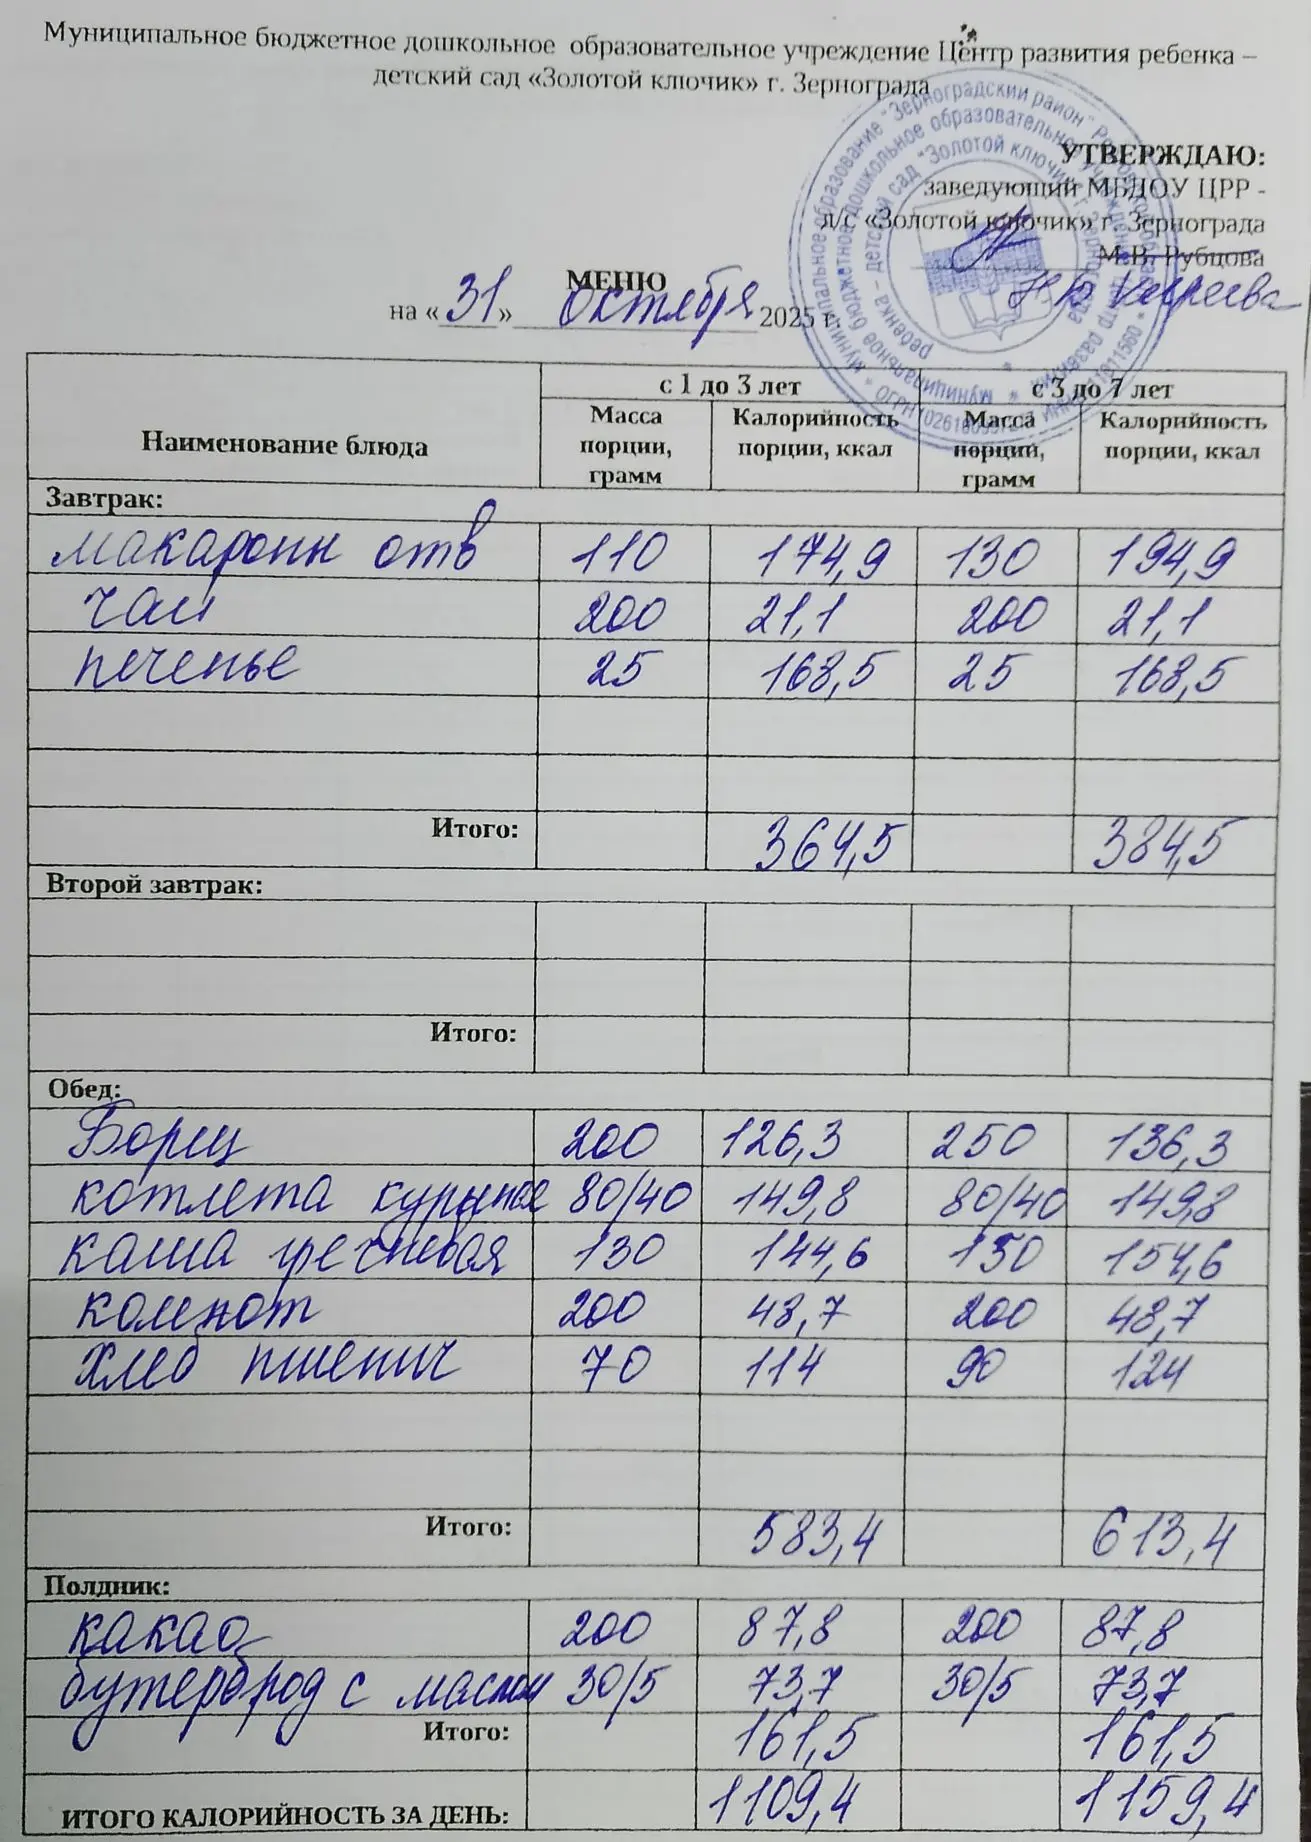 Муниципальное бюджетное дошкольное образовательное учреждение Центр развития ребенка –
детский сад «Золотой ключик» г. Зернограда
УТВЕРЖДАЮ:
заведующий МБДОУ ЦРР -
д/с «Золотой ключик» г. Зернограда
М.В. Рубцова
МЕНЮ
на «31» октября 2025 г.
Наименование блюда с 1 до 3 лет с 3 до 7 лет
Масса порции, грамм Калорийность порции, ккал Масса порции, грамм Калорийность порции, ккал
Завтрак:
макароны отв 110 174,9 130 194,9
чай 200 21,1 200 21,1
печенье 25 168,5 25 168,5
Итого: 364,5 384,5
Второй завтрак:
Итого:
Обед:
Борщ 200 126,3 250 136,3
котлета курыная 80/40 149,8 80/40 149,8
каша гречневая 130 144,6 150 154,6
компот 200 48,7 200 48,7
хлеб пшенич 70 114 90 124
Итого: 583,4 613,4
Полдник:
какао 200 87,8 200 87,8
бутерброд с маслом 30/5 73,7 30/5 73,7
Итого: 161,5 161,5
ИТОГО КАЛОРИЙНОСТЬ ЗА ДЕНЬ: 1109,4 1159,4